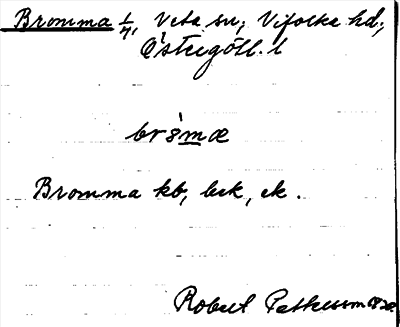 Bromma 1/4, Veta sn, Vifolka hd,
Östergötl. l
Bromma kb, bek, ek.
Robert Pettersson